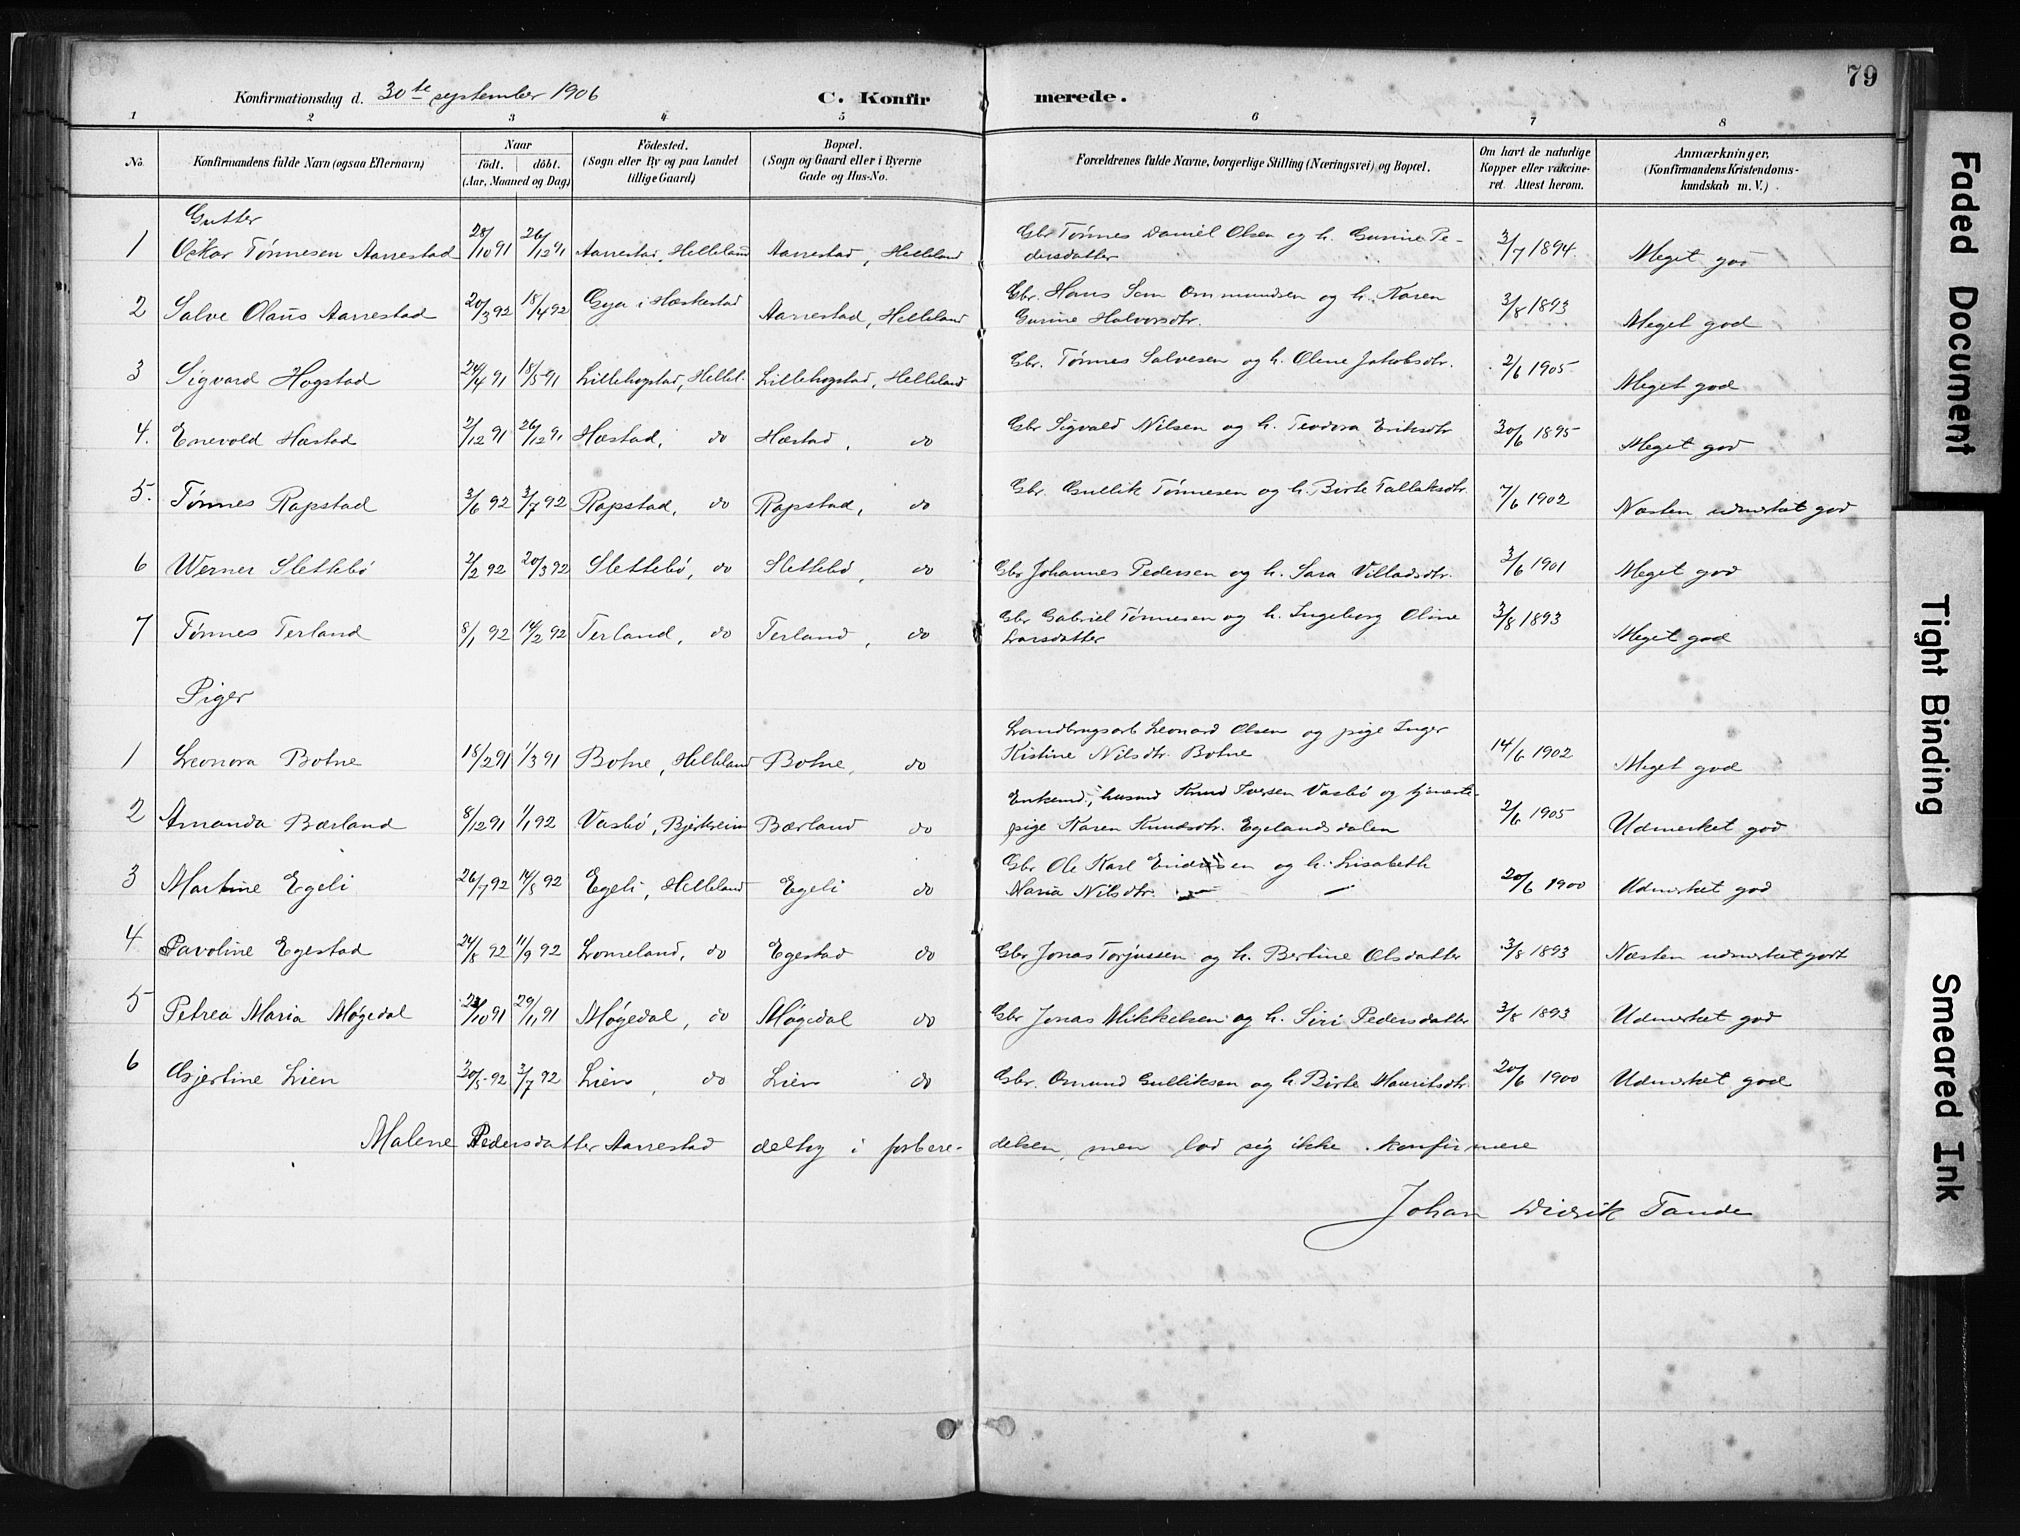 79
Konfirmationsdag d. 30te september 1906 C. Konfirmerede.
1 2 3 4 5 6 7 8
No. Konfirmandens fulde Navn (ogsaa Efternavn) Naar født. døbt. (Aar, Maaned og Dag) Födested. (Sogn eller By og paa Landet tillige Gaard) Bopæl. (Sogn og Gaard eller i Byerne Gade og Hus-No. Forældrenes fulde Navne, borgerlige Stilling (Næringsvei) og Bopæl. Om havt de naturlige Kopper eller vakcineret. Attest herom. Anmærkninger, (Konfirmandens Kristendomskundskab m. V.)
Gutter
1 Oskar Tønnesen Aarrestad 28/10 91 26/12 91 Aarrestad, Helleland Aarrestad, Helleland Gbr Tønnes Daniel Olsen og h. Gurine Pedersdatter 3/7 1894. Meget god
2 Salve Olaus Aarrestad 20/3 92 18/4 92 Gya i Hæskestad Aarrestad, Helleland Gbr. Hans Sem Ommundsen og h. Karen Gurine Halvorsdtr. 3/8 1893 Meget god
3 Sigvard Hogstad 24/4 91 18/5 91 Lillehogstad, Hellel. Lillehogstad, Helleland Gbr. Tønnes Salvesen og h. Olene Jakobsdtr. 2/6 1905 Meget god
4. Enevold Hæstad 2/12 91 26/12 91 Hæstad, do Hæstad, do Gbr Sigvald Nilsen og h. Teodora Eriksdtr 30/6 1895 Meget god
5. Tønnes Rapstad 3/6 92 3/7 92 Rapstad, do Rapstad, do Gbr. Gullik Tønnesen og h. Birte Tallaksdtr. 7/6 1902 Næsten udmerket god
6 Werner Slettebø 2/2 92 20/3 92 Slettebø, do Slettebø, do Gbr Johannes Pedersen og h. Sara Villadsdtr. 3/6 1901 Meget god
7 Tønnes Terland 8/1 92 14/2 92 Terland, do Terland, do Gbr Gabriel Tønnesen og h. Ingeborg Oline Larsdatter 3/8 1893 Meget god
Piger
1 Leonora Botne 18/2 91 1/3 91 Botne, Helleland Botne, do Landbrugsarb Leonard Olsen og pige Inger Kistine Nilsdtr. Botne 14/6 1902 Meget god
2 Amanda Bærland 8/12 91 1/1 92 Vasbø, Bjerkreim Bærland do Enkemd, husmd Knud Iversen Vasbø og tjenestepige Karen Knudsdtr. Egelandsdalen 2/6 1905 Udmerket god
3 Martine Egeli 26/7 92 14/8 92 Egeli, Helleland Egeli do Gbr Ole Karl Endresen og h. Lisabeth Maria Nilsdtr. 20/6 1900 Udmerket god
4 Pavoline Egestad 24/8 92 11/9 92 Lomeland, do Egestad do Gbr Jonas Torjussen og h. Bertine Olsdatter 3/8 1893 Næsten udmerket godt
5 Petrea Maria Møgedal 23/10 91 29/11 91 Møgedal, do Møgedal do Gbr Jonas Mikkelsen og h. Siri Pedersdatter 3/8 1893 Udmerket god
6 Gjertine Lien 30/5 92 3/7 92 Lien, do Lien do Gbr. Omund Gulliksen og h. Birte Mauritsdtr. 20/6 1900 Udmerket god
Malene Pedersdatter Aarrestad deltog i forberedelsen, men lod sig ikke konfirmere
Johan Didrik Tande
Faded Document
Tight Binding
Smeared Ink